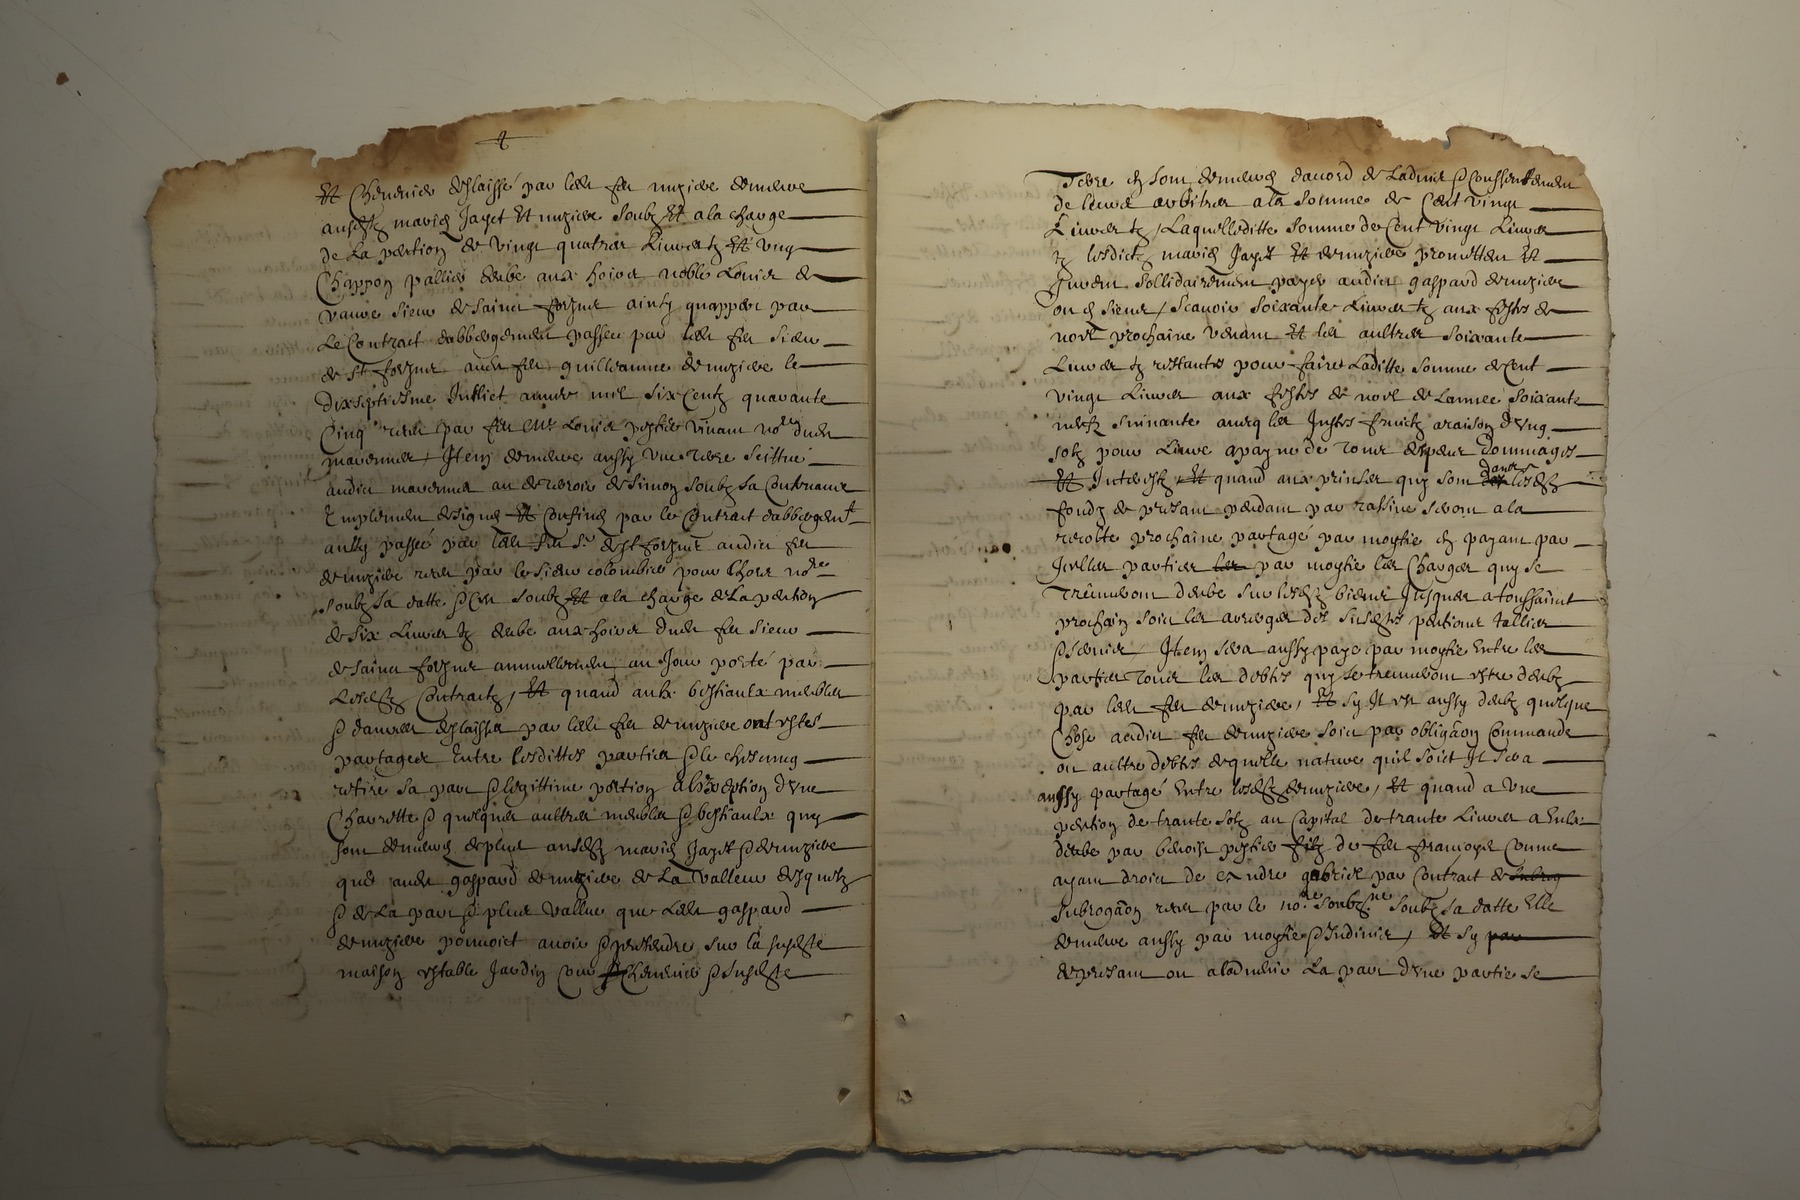 Et Cheneviere deslaissé par ledit feu muziere demeure
ausdits mariés Jayet Et muziere soubz Et a la charge
de La pention de vingt quatres Livres tz Et ung
Chappon pallier deube aux hoirs noble Louis de
sieur de sainct forgeux ainsy quappert par
Le Contract dabbergement passee par ledit feu sieur
de St forgeux audit feu guilleaume demuziere le
dixseptiesme Juilliet année mil six Centz quarante
Cinq receu par feu Me Louis vivant nore dudit
Item demeure aussy une terre scittuee
audict au de simon soubz sa Contenance
Emplement designé Et Confiné par le Contract dabbergemt
aussy passeé par ledit feu Sr de St forgeux audict feu
demuziere receu par le sieur colombier pour Lhors nore
soubz sa datte & Cest soubz Et a la charge de La pention
de six Livres tz deube aux hoirs dudit feu sieur
de sainct forgeux annuellement au Jour porté par
Lesdits Contractz, Et quand aulx bestiaulx meubles
& danrees deslaisses par ledit feu demuziere ont estes
partagees Entre lesdittes parties & le chescung
retiré sa part & legittime portion a lexception dune
Charrette & quelques aultres meubles & bestiaulx quy
sont demeurés de plus ausdits mariés Jayet & demuziere
que audit gaspard demuziere de La Valleur desquelz
& de La part & plus vallue que Ledit gaspard
demuziere pouvoict avoir & prethendre sur la susdite
maison estable Jardin Cour Cheneviere & susdite
Terre Ils sont demeurés dacord de Ladvis & Conssentement
de leurs arbitres a la somme de Cent vingt
Livres tz, Laquelleditte somme de Cent vingt Livres
tz lesdicts mariés Jayet Et demuziere promettent Et
Jurent sollidairement payer audict gaspard demuziere
ou és siens, Scavoir soixante Livres tz aux festes de
noel prochaine venant Et les aultres soixante
Livres tz restantes pour faire Laditte somme de Cent
vingt Livres aux festes de noel de Lannee soixante
neufz suivante avecq les Justes fruictz a raison dung
solz pour Livre a payne de tous despens dommages
Et Interestz, Et quand aux prinses quy sont dans lesdits
fondz de presant pendant par rassine seront a la
recolte prochaine partagé par moytie en payant par
Jcelles parties les par moytie les Charges quy se
treuveront deube sur lesdits biens Jusques a toussainct
prochain soict les arreages des susdites pentions tallies
& servis, Item sera aussy paye par moytie Entre les
parties tous les debtes quy se treuveront estre deubz
par ledit feu demuziere, Et sy Il est aussy deubz quelque
Chose audict feu demuziere soict par obligaon Commande
ou aultre debtes de quelle nature quil soict Il sera
aussy partagé Entre lesdits demuziere, Et quand a Une
pention de trante solz au Capital de trante Livres a Eulx
deube par benoist filz de feu françoys Comme
ayant droict de gabriel par Contract de subrog
subrogaon receu par le nore soubzne soubz sa datte Elle
demeure aussy par moytie & Indivis, Et sy par
de presant ou a Ladvenir La part dune partie se